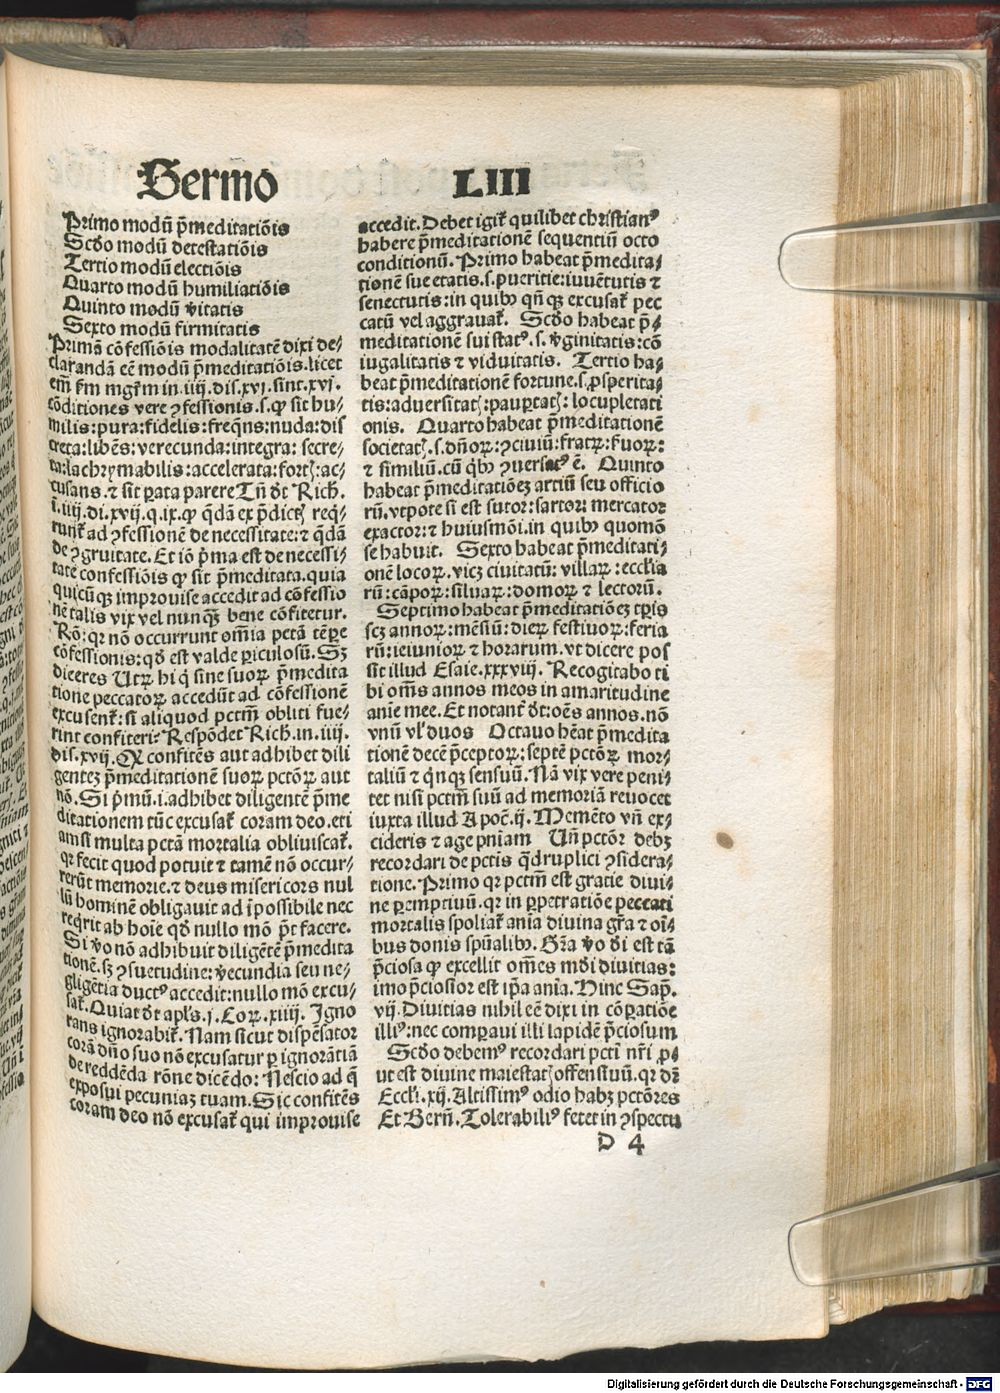 Sermo LIII
Primo modū p̄meditatiōis
Scd̄o modū detestatiōis
Tertio modū electiōis
Quarto modū humiliatiōis
Quinto modū v̄itatis
Sexto modū firmitatis
Primā cōfessiōis modalitatē dixi de⸗
clarandā eē modū p̄meditatiōis. licet
em̄ km̄ mgr̄m in. iiij. dis. xvj. sint. xvj.
cōditiones vere ꝯfessionis. s. ꝙ sit hu⸗
milis: pura: fidelis: freq̄ns: nuda: dis
creta: libēs: verecunda: integra: secre⸗
ta: lachrymabilis: accelerata: fortꝭ: ac⸗
cusans. ⁊ sit ꝑata parere Tn̄ dt̄ Rich.
ī. iiij. di. xvij. q. ix. ꝙ q̄dā ex p̄dictꝭ req̄⸗
runt̄ ad ꝯfessionē de necessitate: ⁊ q̄dā
de ꝯgruitate. Et iō p̄ma est de necessi⸗
tate confessiōis ꝙ sit p̄meditata. quia
quicūqꝫ improuise accedit ad cōfessio
nē talis vix vel nunqꝫ bene cōfitetur.
Rō: qꝛ nō occurrunt om̄ia pctā tēpe
cōfessionis: qd̄ est valde ꝑiculosū. Sꝫ
diceres Utꝝ hi q̇ sine suoꝝ p̄medita
tione peccatoꝝ accedūt ad cōfessionē
excusent̄: si aliquod pctm̄ obliti fue⸗
rint confiteri? Respōdet Rich. in. iiij.
dis. xvij. Ꝙ confitēs aut adhibet dili
gentez p̄meditationē suoꝝ pctōꝝ aut
nō. Si p̄mū. i. adhibet diligentē p̄me
ditationem tūc excusat̄ coram deo. eti
amsi multa pctā mortalia obliuiscat̄.
qꝛ fecit quod potuit ⁊ tamē nō occur⸗
rerūt memorie. ⁊ deus misericors nul
lū hominē obligauit ad īpossibile nec
req̇rit ab hoīe qd̄ nullo mō p̄t facere.
Si v̄o nō adhibuit diligētē p̄medita
tionē. sꝫ ꝯsuetudine: v̄ecundia seu ne⸗
gligētia ductꝰ accedit: nullo mō excu⸗
sat̄. Quia dt̄ apl̄s. j. Coꝝ. xiiij. Igno
rans ignorabit̄. Nam sicut dispēsator
corā dn̄o suo nō excusatur ꝑ ignorātiā
de reddēda rōne dicēdo: Nescio ad q̄
exposui pecuniaz tuam. Sic confitēs
coram deo nō excusat̄ qui improuise
accedit. Debet igit̄ quilibet christianꝰ
habere p̄meditationē sequentiū octo
conditionū. Primo habeat p̄medita⸗
tionē sue etatis. s. pueritie: iuuētutis ⁊
senectutis: in quibꝫ qn̄qꝫ excusat̄ pec
catū vel aggrauat̄. Scd̄o habeat p̄⸗
meditationē sui statꝰ. s. v̄ginitatis: cō
iugalitatis ⁊ viduitatis. Tertio ha⸗
beat p̄meditationē fortune. s. ꝓsperita⸗
tis: aduersitatꝭ: pauꝑtatꝭ: locupletati
onis. Quarto habeat p̄meditationē
societatꝭ. s. dn̄oꝝ: ꝯciuiū: fratꝝ: suoꝝ:
⁊ similiū. cū q̇bꝫ ꝯuersatꝰ ē. Quinto
habeat p̄meditatiōez artiū seu officio
rū. vtpote si est sutor: sartor: mercator
exactor: ⁊ huiusmōi. in quibꝫ quomō
se habuit. Sexto habeat p̄meditati⸗
onē locoꝝ. vicꝫ ciuitatū: villaꝝ: eccl̄ia
rū: cāpoꝝ: siluaꝝ: domoꝝ ⁊ lectorū.
Septimo habeat p̄meditatiōez tꝑis
scꝫ annoꝝ: mēsiū: dieꝝ festiuoꝝ: feria
rū: ieiunioꝝ ⁊ horarum. vt dicere pos
sit illud Esaie. xxxviij. Recogitabo ti
bi om̄s annos meos in amaritudine
anīe mee. Et notant̄ dt̄: oēs annos. nō
vnū vl̓ duos Octauo hēat p̄medita
tionē decē p̄ceptoꝝ: septē pctōꝝ mor⸗
taliū ⁊ q̇nqꝫ sensuū. Nā vix vere peni⸗
tet nisi pctm̄ suū ad memoriā reuocet
iuxta illud Apoc̄. ij. Memēto vn̄ ex⸗
cideris ⁊ age pn̄iam Un̄ pctōr debꝫ
recordari de pctis q̄druplici ꝯsidera⸗
tione. Primo qꝛ pctm̄ est gratie diui⸗
ne ꝑemptiuū. qꝛ in ꝑpetratiōe peccati
mortalis spoliat̄ anīa diuina gr̄a ⁊ oī⸗
bus donis spūalibꝫ. Gr̄a v̄o dī est tā
p̄ciosa ꝙ excellit om̄es mdī diuitias:
imo p̄ciosior est ip̄a anīa. Hinc Sap̄.
vij. Diuitias nihil eē dixi in cōꝑatiōe
illiꝰ: nec comparaui illi lapidē p̄ciosum
Scd̄o debemꝰ recordari pctī nr̄i ꝓ⸗
ut est diuine maiestatꝭ offensiuū. qꝛ dr̄
Eccli̓. xij. Altissimꝰ odio habꝫ pctōres
Et Bern̄. Tolerabiliꝰ fetet in ꝯspectu
D 4
Digitalisierung gefördert durch die Deutsche Forschungsgemeinschaft - DFG